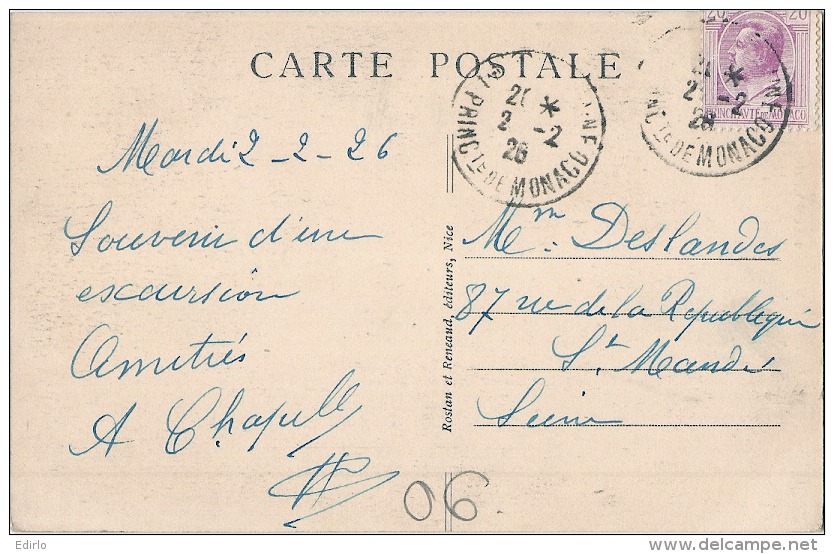 CARTE POSTALE
20 20
PRINCIPAUTÉ DE MONACO
PRINC.TÉ DE MONACO
2 -2
26
PRINC.TÉ DE MONACO
2 -2
26
Mardi 2-2-26
Souvenir d'une
excursion
Amitiés
A Chapelle
Rostan et Reneaud, éditeurs, Nice
Mme Deslandes
87 rue de la Republique
St Mandé
Seine
06
Edirlo
www.delcampe.net